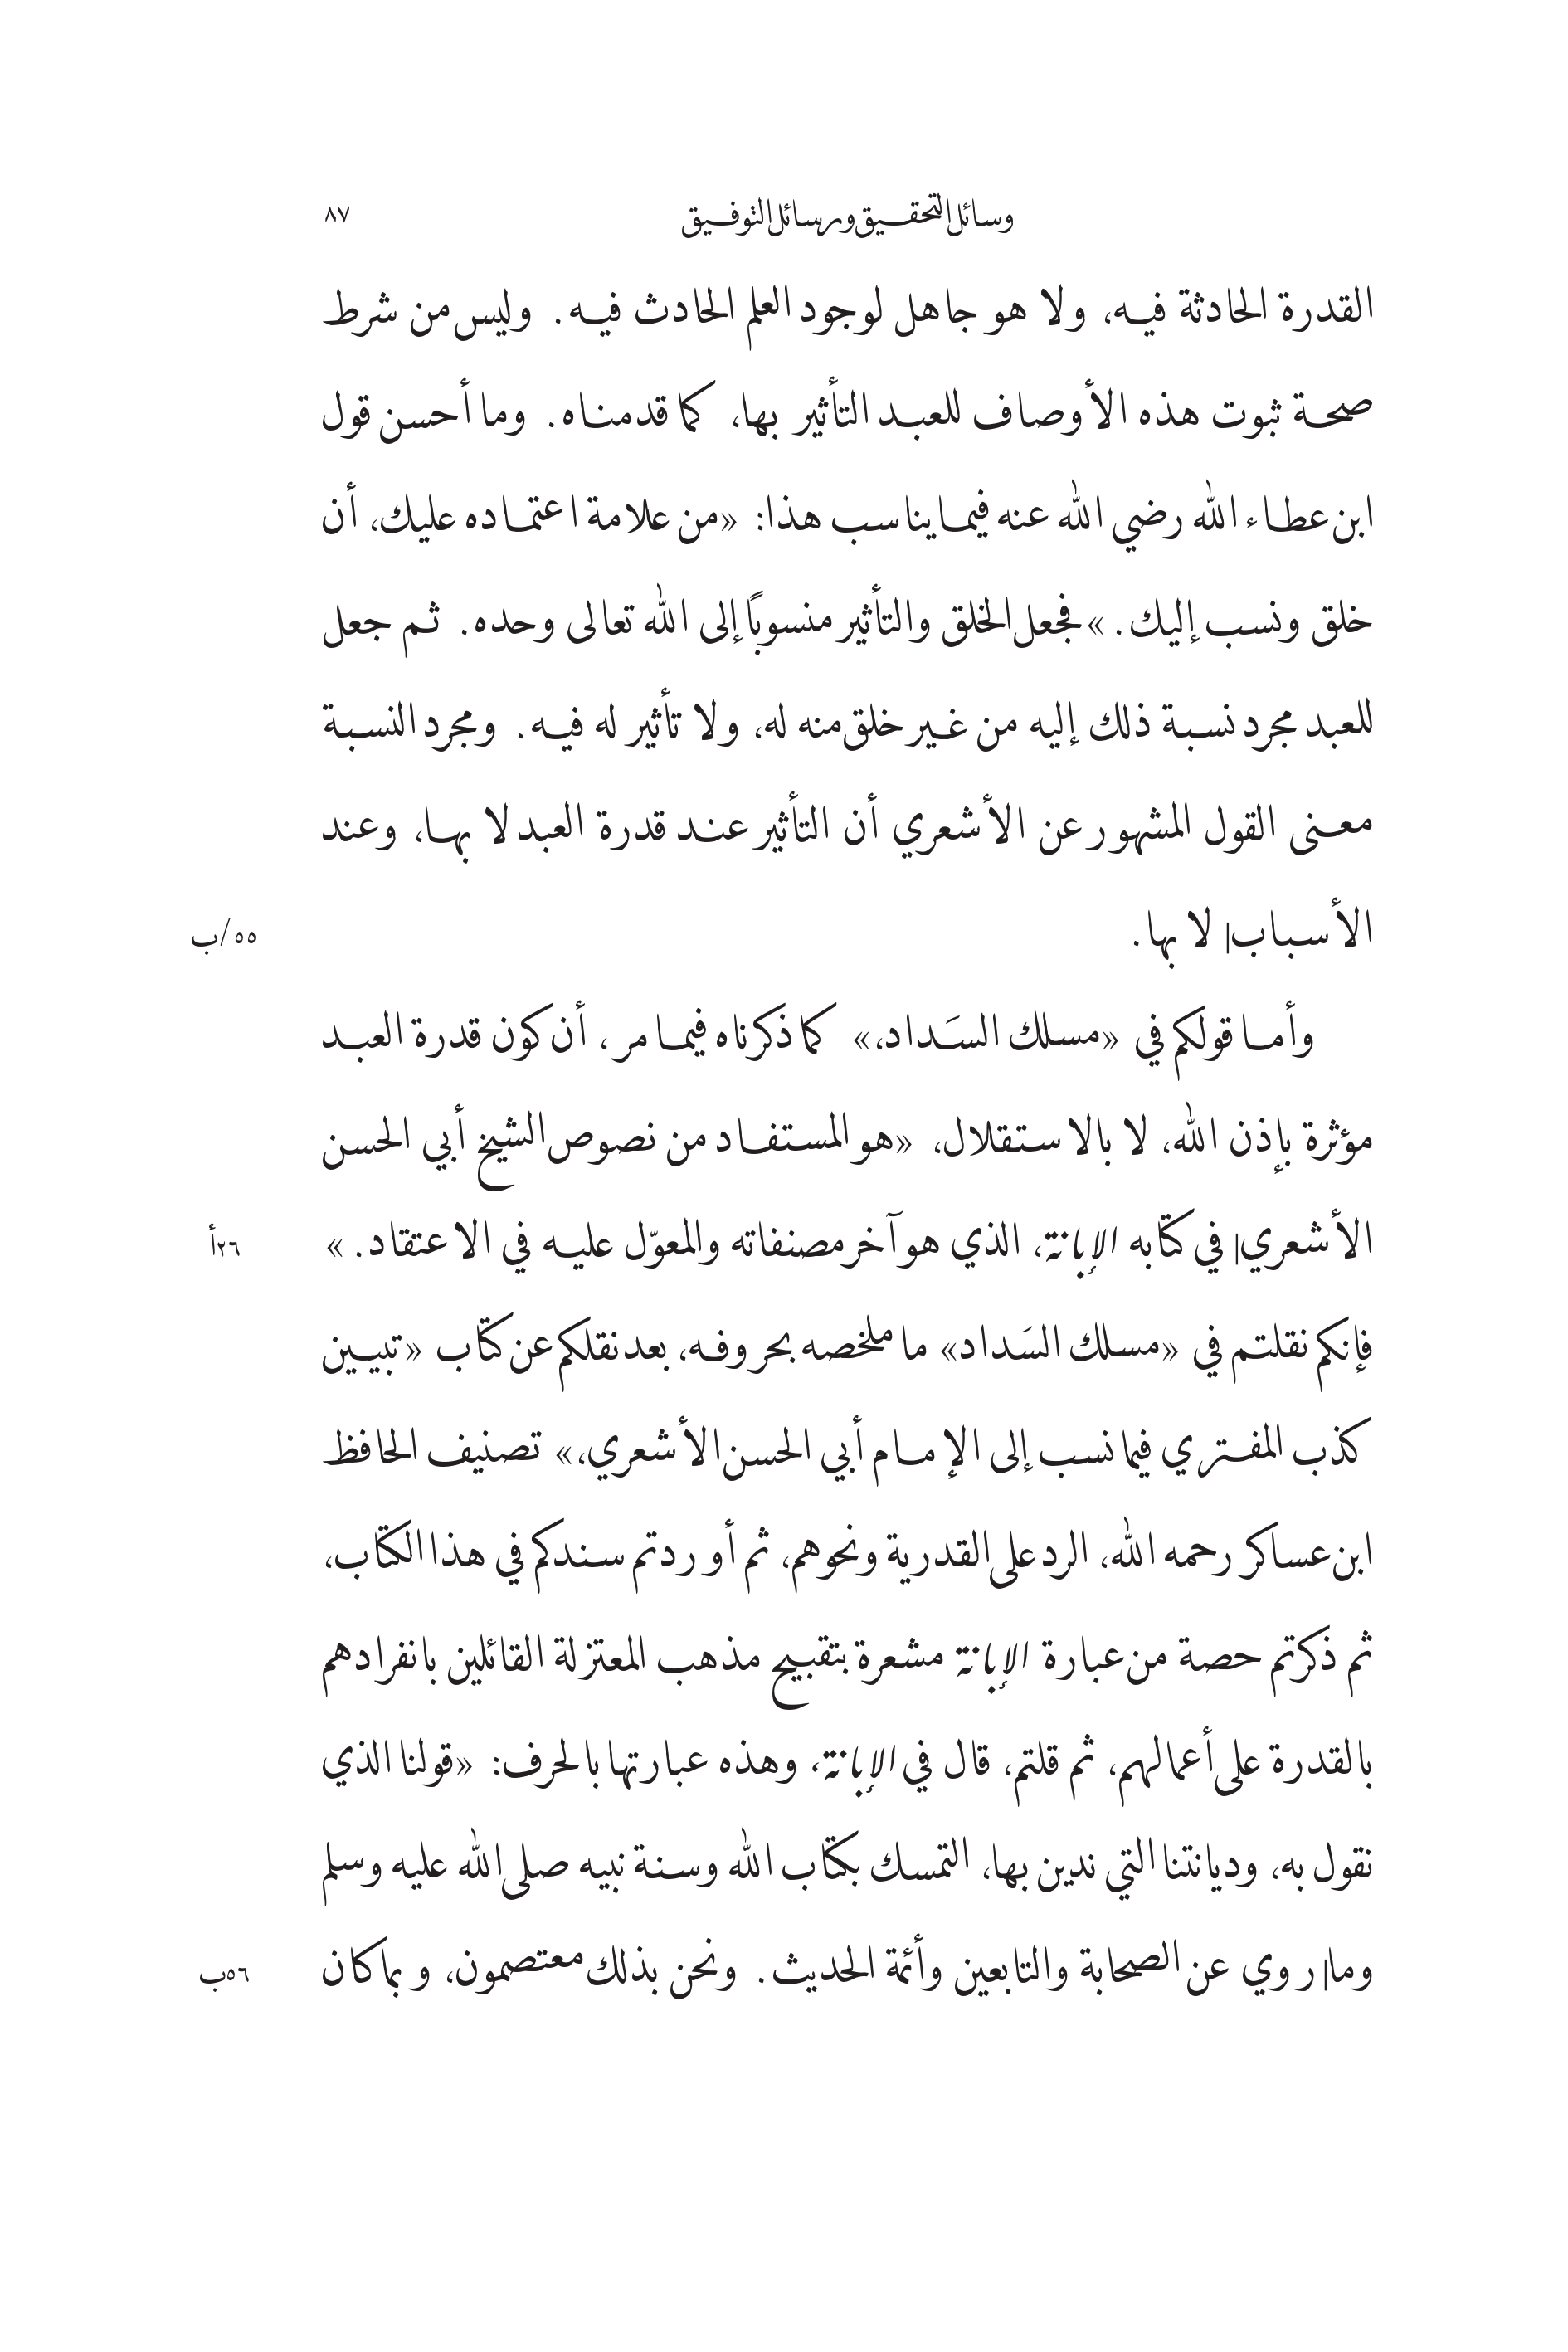 وسائل التحقيق ورسائل التوفيق ٨٧
القدرة الحادثة فيه، ولا هو جاهل لوجود العلم الحادث فيه. وليس من شرط
صحة ثبوت هذه الأوصاف للعبد التأثير بها، كما قدمناه. وما أحسن قول
ابن عطاء الله رضي الله عنه فيما يناسب هذا: «من علامة اعتماده عليك، أن
خلق ونسب إليك.» فجعل الخلق والتأثير منسوبًا إلى الله تعالى وحده. ثم جعل
للعبد مجرد نسبة ذلك إليه من غير خلق منه له، ولا تأثير له فيه. ومجرد النسبة
معنى القول المشهور عن الأشعري أن التأثير عند قدرة العبد لا بها، وعند
الأسباب| لا بها. ٥٥/ب
وأما قولكم في «مسلك السَداد،» كما ذكرناه فيما مر، أن كون قدرة العبد
مؤثرة بإذن الله، لا بالاستقلال، «هو المستفاد من نصوص الشيخ أبي الحسن
الأشعري| في كتابه الإبانة، الذي هو آخر مصنفاته والمعوّل عليه في الاعتقاد.» ٢٦أ
فإنكم نقلتم في «مسلك السَداد» ما ملخصه بحروفه، بعد نقلكم عن كتاب «تبيين
كذب المفتري فيما نسب إلى الإمام أبي الحسن الأشعري،» تصنيف الحافظ
ابن عساكر رحمه الله، الرد على القدرية ونحوهم، ثم أوردتم سندكم في هذا الكتاب،
ثم ذكرتم حصة من عبارة الإبانة مشعرة بتقبيح مذهب المعتزلة القائلين بانفرادهم
بالقدرة على أعمالهم، ثم قلتم، قال في الإبانة، وهذه عبارتها بالحرف: «قولنا الذي
نقول به، وديانتنا التي ندين بها، التمسك بكتاب الله وسنة نبيه صلى الله عليه وسلم
وما| روي عن الصحابة والتابعين وأئمة الحديث. ونحن بذلك معتصمون، وبما كان ٥٦ب